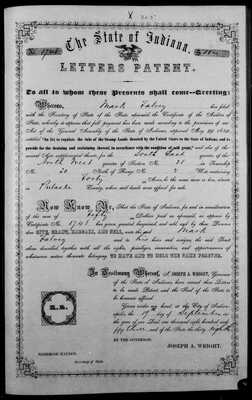 The State of Indiana.
LETTERS PATENT.
To all to whom these Presents shall come—Greeting:
Whereas, Mark has filed
with the Secretary of State of the State aforesaid the Certificate of the Auditor of
State, whereby it appears that full payment has been made according to the provisions of an
Act of the General Assembly of the State of Indiana, approved May 29, 1852,
entitled "An Act to regulate the Sale of the Swamp Lands donated by the United States to the State of Indiana, and to
provide for the draining and reclaiming thereof, in accordance with the condition of said grant," and also of the
Act supplementary thereto, for the South East quarter of the
North West quarter of Section No. Township
No. North, of Range No. West containing
Forty Acres, be the same more or less, situate
in Pulaski County, when said lands were offered for sale.
Now Know Ye, That the State of Indiana, for and in consideration
of the sum of Dollars paid as aforesaid, as appears by
Certificate No. has given, granted, bargained and sold, and by these Presents
does GIVE, GRANT, BARGAIN, AND SELL, unto the said Mark
and to heirs and assigns, the said Tract
above described, together with all the rights, privileges, immunities, and appurtenances of
whatsoever nature thereunto belonging, TO HAVE AND TO HOLD THE SAME FOREVER.
In Testimony Whereof, I, JOSEPH A. WRIGHT, Governor
of the State of Indiana, have caused these Letters
to be made Patent, and the Seal of the State to
be hereunto affixed.
Given under my hand, at the City of Indianapolis,
the 19 day of September in
the year of our Lord one thousand eight hundred and
fifty three and of the State the thirty eighth
BY THE GOVERNOR:
JOSEPH A. WRIGHT.
Secretary of State.